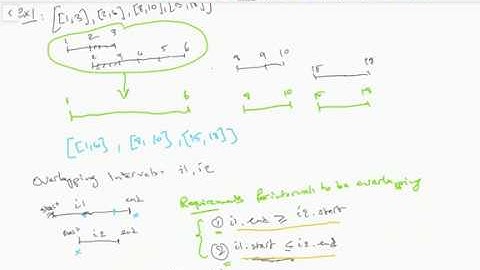 Ex1: [[1,3],[2,6],[8,10],[15,18]]
1 2 3
2 3 4 5 6
8 9 10
15 18
1 6
8 10
15 18
[[1,6], [8,10], [15,18]]
Overlapping Intervals: i1, i2
start i1 end
start i2 end
Requirements for intervals to be overlapping
① i1.end ≥ i2.start
② i1.start ≤ i2.end